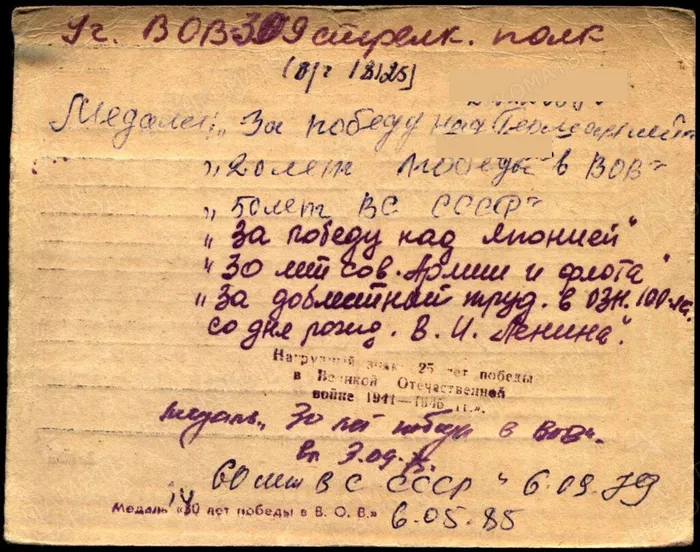 Уг. ВОВ-309 стрелк. полк
(в/ч 18125)
Медали: „За победу над Германией"
„20 лет победы в ВОВ"
„50 лет ВС СССР"
„За победу над Японией"
„30 лет сов. Армии и флота"
„За доблестный труд. в озн. 100-л.
со дня рожд. В. И. Ленина".
Нагрудный знак 25 лет победы
в Великой Отечественной
войне 1941—1945 гг.».
медаль „30 лет победы в ВОВ".
вл 3.09.
60 лет ВС СССР" 6.09.79
Медаль «40 лет победы в В. О. В.» 6.05.85